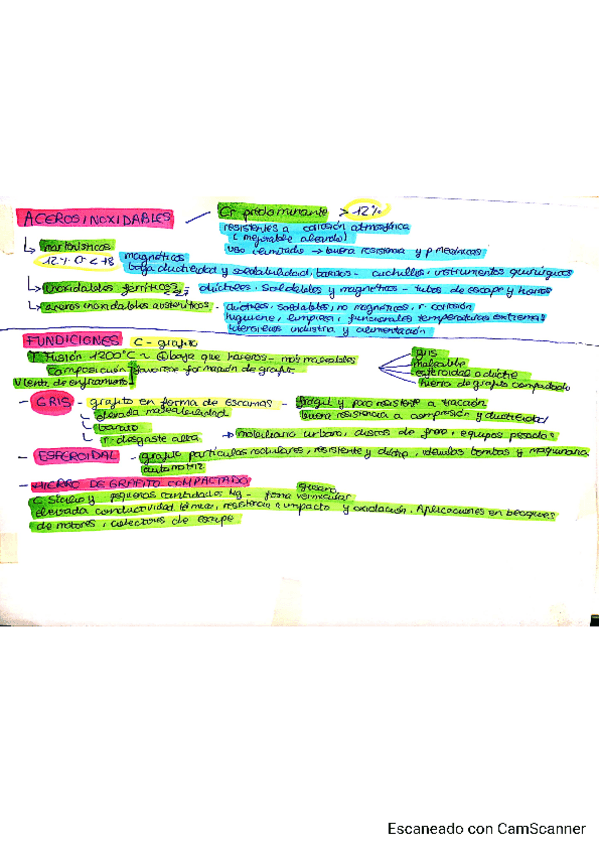 ACEROS INOXIDABLES Cr predominante > 12%
resistentes a corrosión atmosférica
( mejorable aleando)
uso limitado → buena resistencia y p mecánicas
↳ martensíticos
12% Cr < 18 magnéticos
baja ductilidad y soldabilidad, baratos - cuchillos, instrumentos quirúrgicos
↳ inoxidables ferríticos dúctiles, soldables y magnéticos - tubos de escape y hornos
↳ aceros inoxidables austeníticos - dúctiles, soldables, no magnéticos, r. corrosión
higiene, limpieza, funcionales temperaturas extremas
utensilios industria y alimentación
FUNDICIONES C - grafito
T. Fusión 1200°C baja que haceros - más maleables
composición favorece formación de grafito
V lenta de enfriamiento
gris
maleable
esferoidal o dúctil
hierro de grafito compactado
- GRIS - grafito en forma de escamas - frágil y poco resistente a tracción
buena resistencia a compresión y ductilidad
↳ elevada maleabilidad
↳ barato
↳ r. desgaste alta → mobiliario urbano, discos de freno, equipos pesados
- ESFEROIDAL - grafito partículas nodulares, resistente y dúctil, válvulas bombas y maquinaria
automotriz
- HIERRO DE GRAFITO COMPACTADO
C, silicio y pequeñas cantidades Mg - forma vermicular
elevada conductividad térmica, resistencia a impacto y oxidación. Aplicaciones en bloques
de motores, colectores de escape
Escaneado con CamScanner